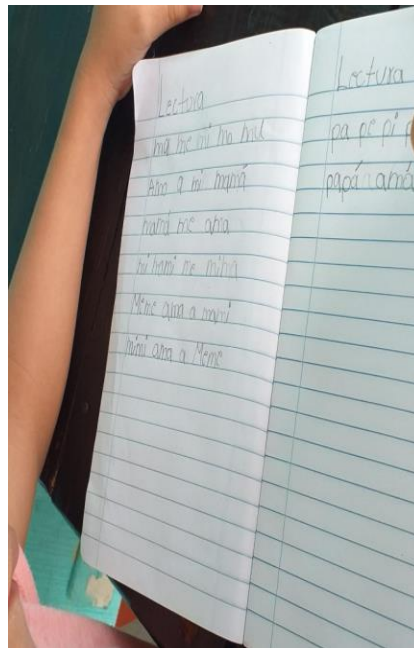 Lectura
ma me mi mo mu
Amo a mi mamá
mamá me ama
mi mami me mima
Meme ama a mami
mimi ama a Meme
Lectura
pa pe pi
papá amá